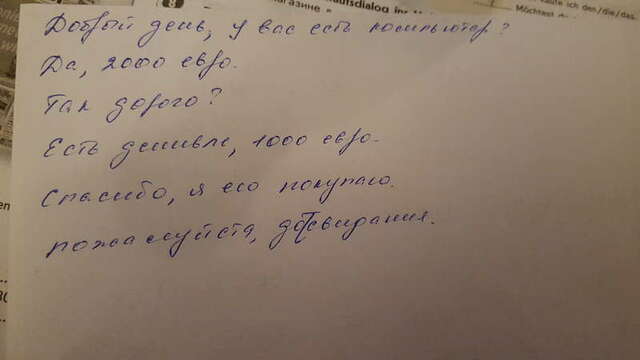 Добрый день, у вас есть компьютер?
Да, 2000 евро.
Так дорого?
Есть дешевле, 1000 евро.
Спасибо, я его покупаю.
пожалуйста, досвидания.
dialog in
Möchten
den/die/das